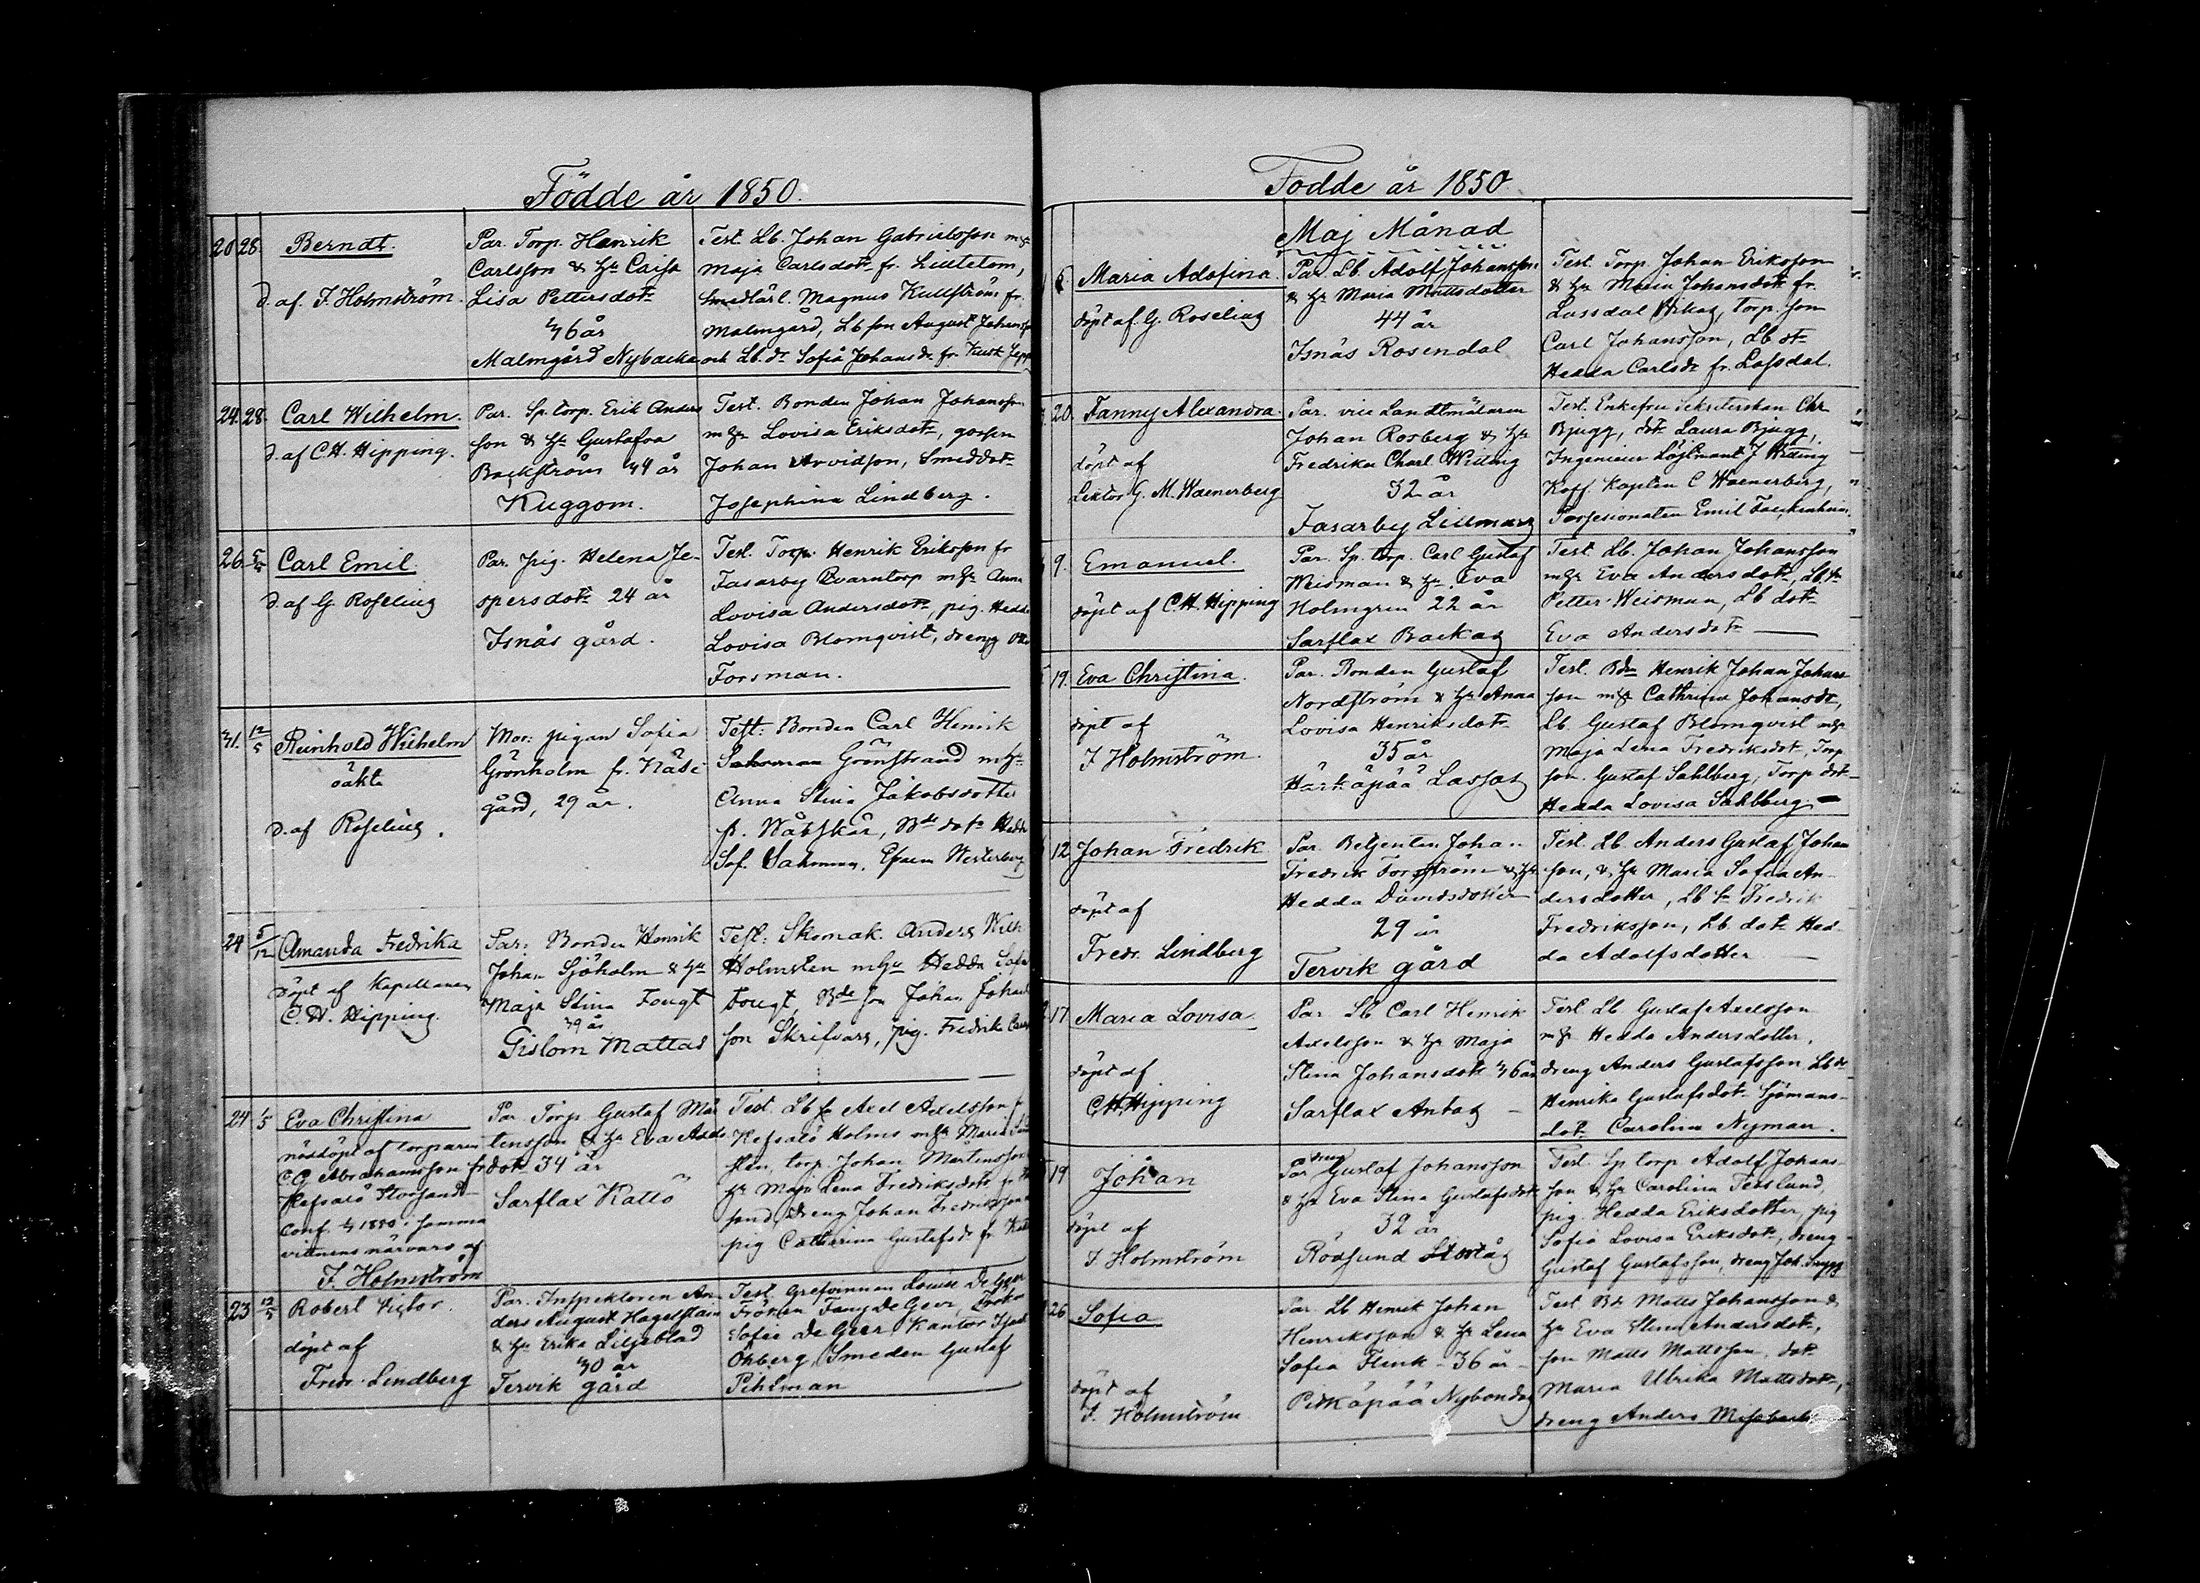 Födde år 1850.
20 28 Berndt.
d. af. J. Holmström.
Par. Torp. Henrik
Carlsson & hr Caisa
Lisa Pettersdotr
46 år
Malmgård Nybacka
Test. Lb. Johan Gabrielsson m hr
Maja Carlsdotr fr. Lilletom,
Smedlärl. Magnus Kullström fr.
Malmgård, Lb son August
och Lb. dr Sofia Johansdr fr. Kusk
24. 28. Carl Wilhelm.
d. af C.H. Hipping.
Par. Sp. torp. Erik Anders
son & hr Gustafva
Backström 44 år
Kuggom.
Test. Bonden Johan Johansson
m hr Lovisa Eriksdotr, gossen
Johan Arvidson, Smeddotr
Josephina Lindberg.
26. 5/5 Carl Emil
d. af G Roseling
Par. pig. Helena Je-
spersdotr 24 år
Isnäs gård.
Test. Torp. Henrik Eriksson fr
Fasarby Qvarntorp m hr Anna
Lovisa Andersdotr, pig. Hedda
Lovisa Blomqvist, dreng
Forsman.
31. 12/5 Reinhold Wilhelm
oäkta
d. af Roseling.
Mor: pigan Sofia
Grönholm fr. Näse
gård, 29 år.
Test: Bonden Carl Henrik
Grönstrand m hr
Anna Stina Jakobsdotter
fr. Våtskär, Bde dotr Hedda
Sof. Sahman, Efraim Westerberg
24 5/12 Amanda Fredrika
döpt af Kapellanen
C. H. Hipping.
Par: Bonden Henrik
Johan Sjöholm & hu
Maja Stina Fougt
39 år
Gislom Mattas
Test: Skomak. Anders Wilh
Holmsten m hu Hedda Sofia
Fougt, Bde son Johan Johans
son Skrifvars, pig. Fredrik
24 1/5 Eva Christina
nöddöpt af torparen
C G Abrahamsson fr
Kefsalö Storsand
Conf. 1850 i samma
vittnens närvaro af
J. Holmström
Par Torp Gustaf Mår
tensson & hr Eva Axels
dotr 34 år
Sarflax Kattö
Test. Lb Axel Axelsson
Kefsalö Holms m hr Maria
sten, torp. Johan Mårtensson
hr Maja Lena Fredriksdotr fr
sand, dreng Johan Fredriksson
pig Catharina Gustafsdr fr. Kattö
23 12/5 Robert Victor.
döpt af
Fredr. Lindberg
Par. Inspektoren An-
ders August Hagelstam
& hr Erika Liljeblad
30 år
Tervik gård
Test. Grefvinnan Louise De Geer
Fröken Fany De Geer, Fröken
Sofie De Geer Kantor
Öhberg, Smeden Gustaf
Pihlman
Födde år 1850
Maj Månad
6 Maria Adofina.
döpt af. G. Roseling
Par. Lb. Adolf Johansson
& hr Maria Mattsdotter
44 år
Isnäs Rosendal
Test. Torp. Johan Eriksson
& hr Maria Johansdotr fr.
Lassdal torp. son
Carl Johansson, Lb dtr
Hedda Carlsdr fr. Lassdal.
20. Fanny Alexandra.
döpt af
Lektor G. M. Waenerberg
Par. vice Landtmätaren
Johan Rosberg & hr
Fredrika Charl Widing
32 år
Fasarby Lillmars
Test. Enkefru Chr
Bjugg, dtr Laura Bjugg,
Ingenieur Löjtnant J Widing
Koff. Kapten C Waenerberg,
Emil
9. Emanuel.
döpt af C.H. Hipping
Par. Sp. torp. Carl Gustaf
Weisman & hr Eva
Holmgren 22 år
Sarflax Backas
Test. Lb. Johan Johansson
m hr Eva Andersdotr, Lb. sn
Petter Weisman, Lb dotr
Eva Andersdotr
19. Eva Christina.
döpt af
J Holmström.
Par. Bonden Gustaf
Nordström & hr Anna
Lovisa Henriksdotr
35 år
Härkäpää Lassas
Test. Bdn Henrik Johan Johans
son m hr Cathrina Johansdr,
Lb. Gustaf Blomqvist m hr
Maja Lena Fredriksdotr, Torp.
son. Gustaf Sahlberg, Torp dotr
Hedda Lovisa Sahlberg.
12 Johan Fredrik
döpt af
Fredr. Lindberg
Par. Betjenten Johan
Fredrik Forsström & hr
Hedda Davidsdotter
29 år
Tervik gård
Test. Lb. Anders Gustaf Johan
son, & hr Maria Sofia An-
dersdotter, Lb sn Fredrik
Fredriksson, Lb. dotr Hed-
da Adolfsdotter
17 Maria Lovisa.
döpt af
C.H. Hipping
Par. Lb Carl Henrik
Axelsson & hr Maja
Stina Johansdotr 36 år
Sarflax Antas
Test Lb Gustaf Axelsson
m hr Hedda Andersdotter,
dreng Anders Gustafsson Lb dr
Henrika Gustafsdotr Sjömans-
dotr Carolina Nyman.
19 Johan
döpt af
J Holmström
Par dreng Gustaf Johansson
& hr Eva Stina Gustafsdotr
32 år
Rödsund
Test. Sp torp Adolf Johans-
son & hr Carolina Terslund,
pig. Hedda Eriksdotter, pig
Sofia Lovisa Eriksdotr, dreng
Gustaf Gustafsson, dreng Joh. Snygg
26 Sofia
döpt af
J. Holmström
Par. Lb Henrik Johan
Henriksson & hr Lena
Sofia Flink 36 år
Pitkäpää Nybondas
Test Bdn Matts Johansson &
hr Eva Stina Andersdotr,
son Matts Mattsson, dotr
Maria Ulrika Mattsdotr,
dreng Anders